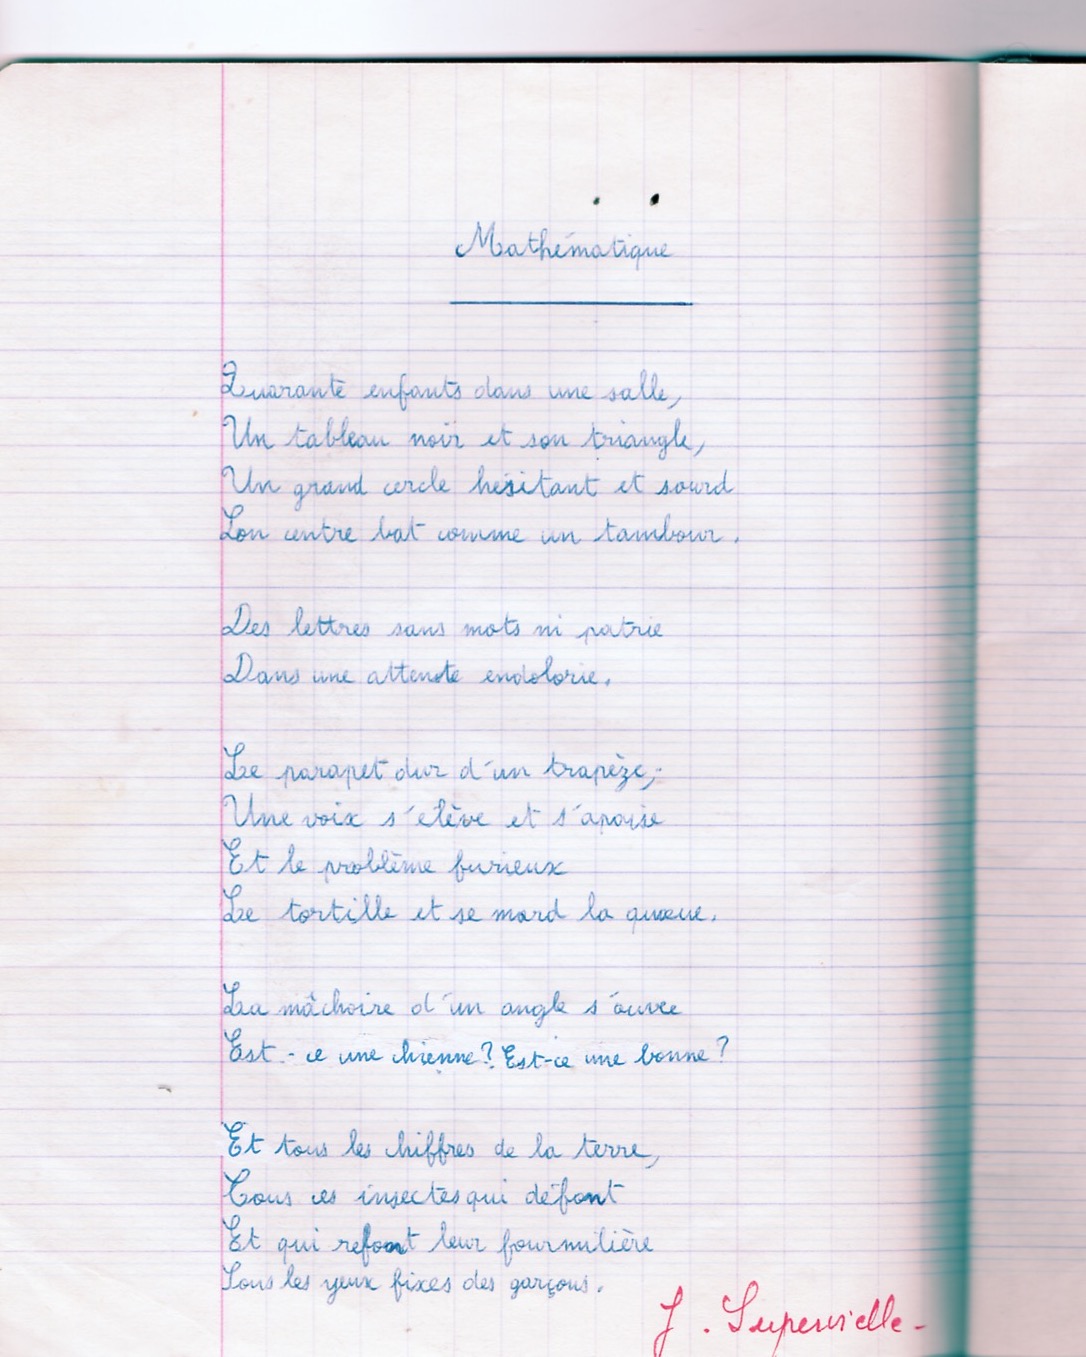 Mathématique
Quarante enfants dans une salle,
Un tableau noir et son triangle,
Un grand cercle hésitant et sourd
Son centre bat comme un tambour.
Des lettres sans mots ni patrie
Dans une attente endolorie.
Le parapet dur d'un trapèze,
Une voix s'élève et s'apaise
Et le problème furieux
Se tortille et se mord la queue.
La mâchoire d'un angle s'ouvre
Est-ce une chienne? Est-ce une bonne?
Et tous les chiffres de la terre,
Tous ces insectes qui défont
Et qui refont leur fourmilière
Sous les yeux fixes des garçons.
J. Supervielle-